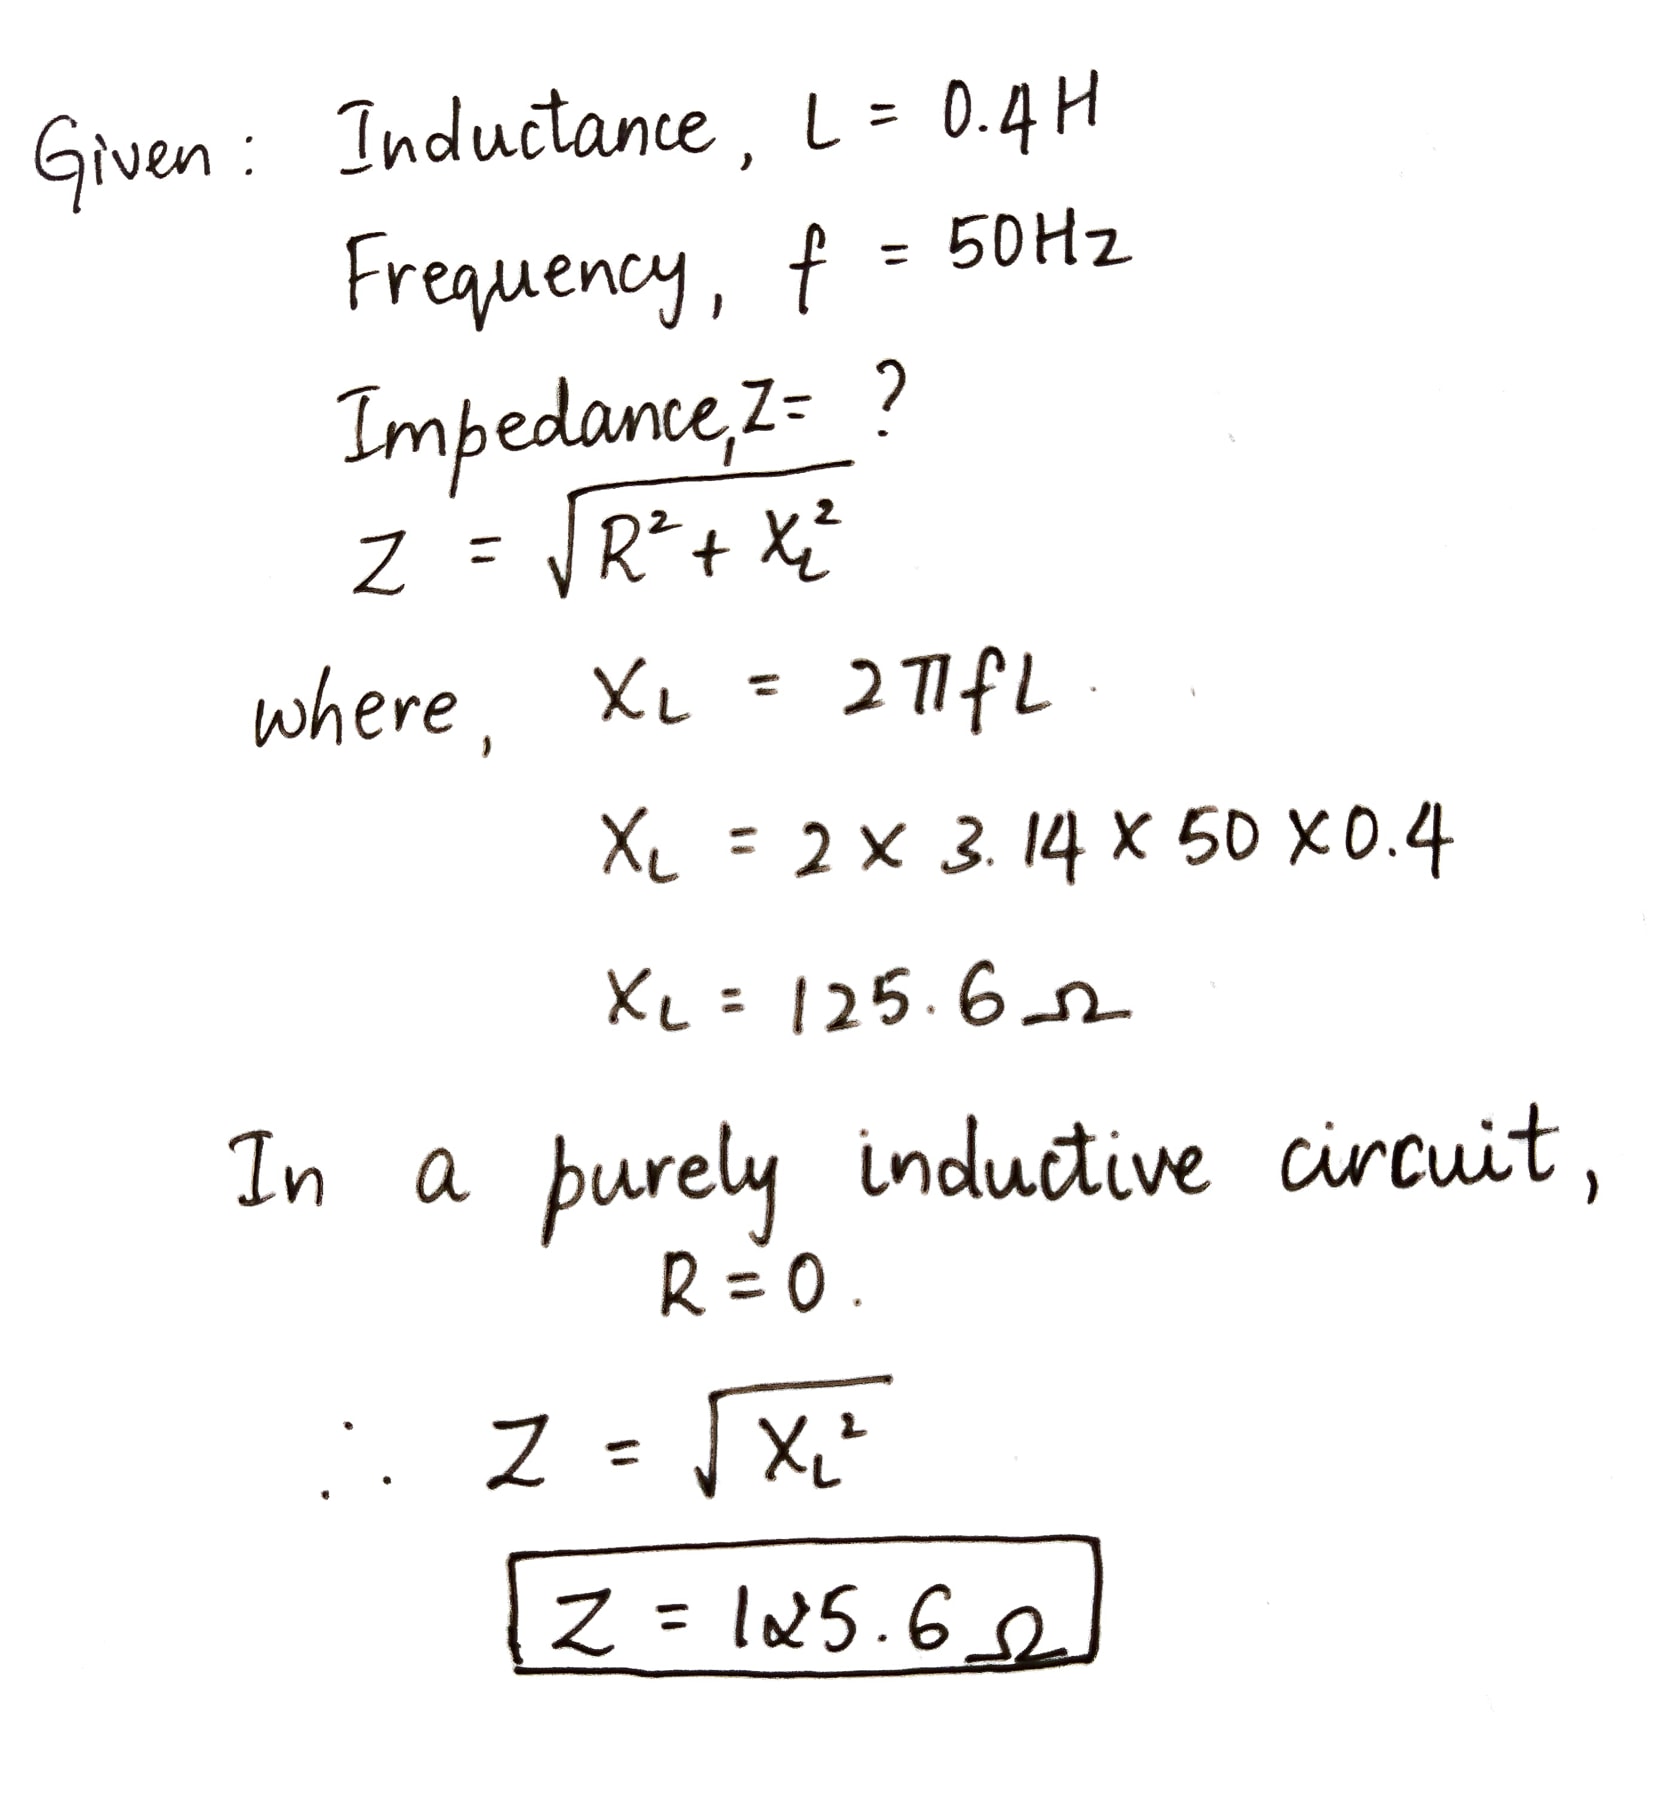 Given: Inductance, L = 0.4H
Frequency, f = 50Hz
Impedance, Z= ?
Z = √R² + X_L²
where, X_L = 2πfL.
X_L = 2 x 3.14 x 50 x 0.4
X_L = 125.6 Ω
In a purely inductive circuit,
R = 0.
∴ Z = √X_L²
Z = 125.6 Ω